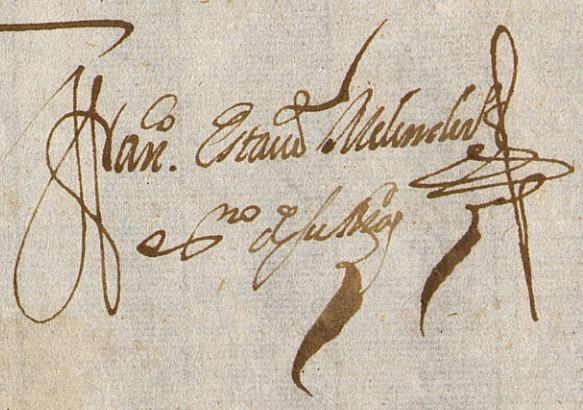 Franco. Estavan Melendez
esno de su Magd